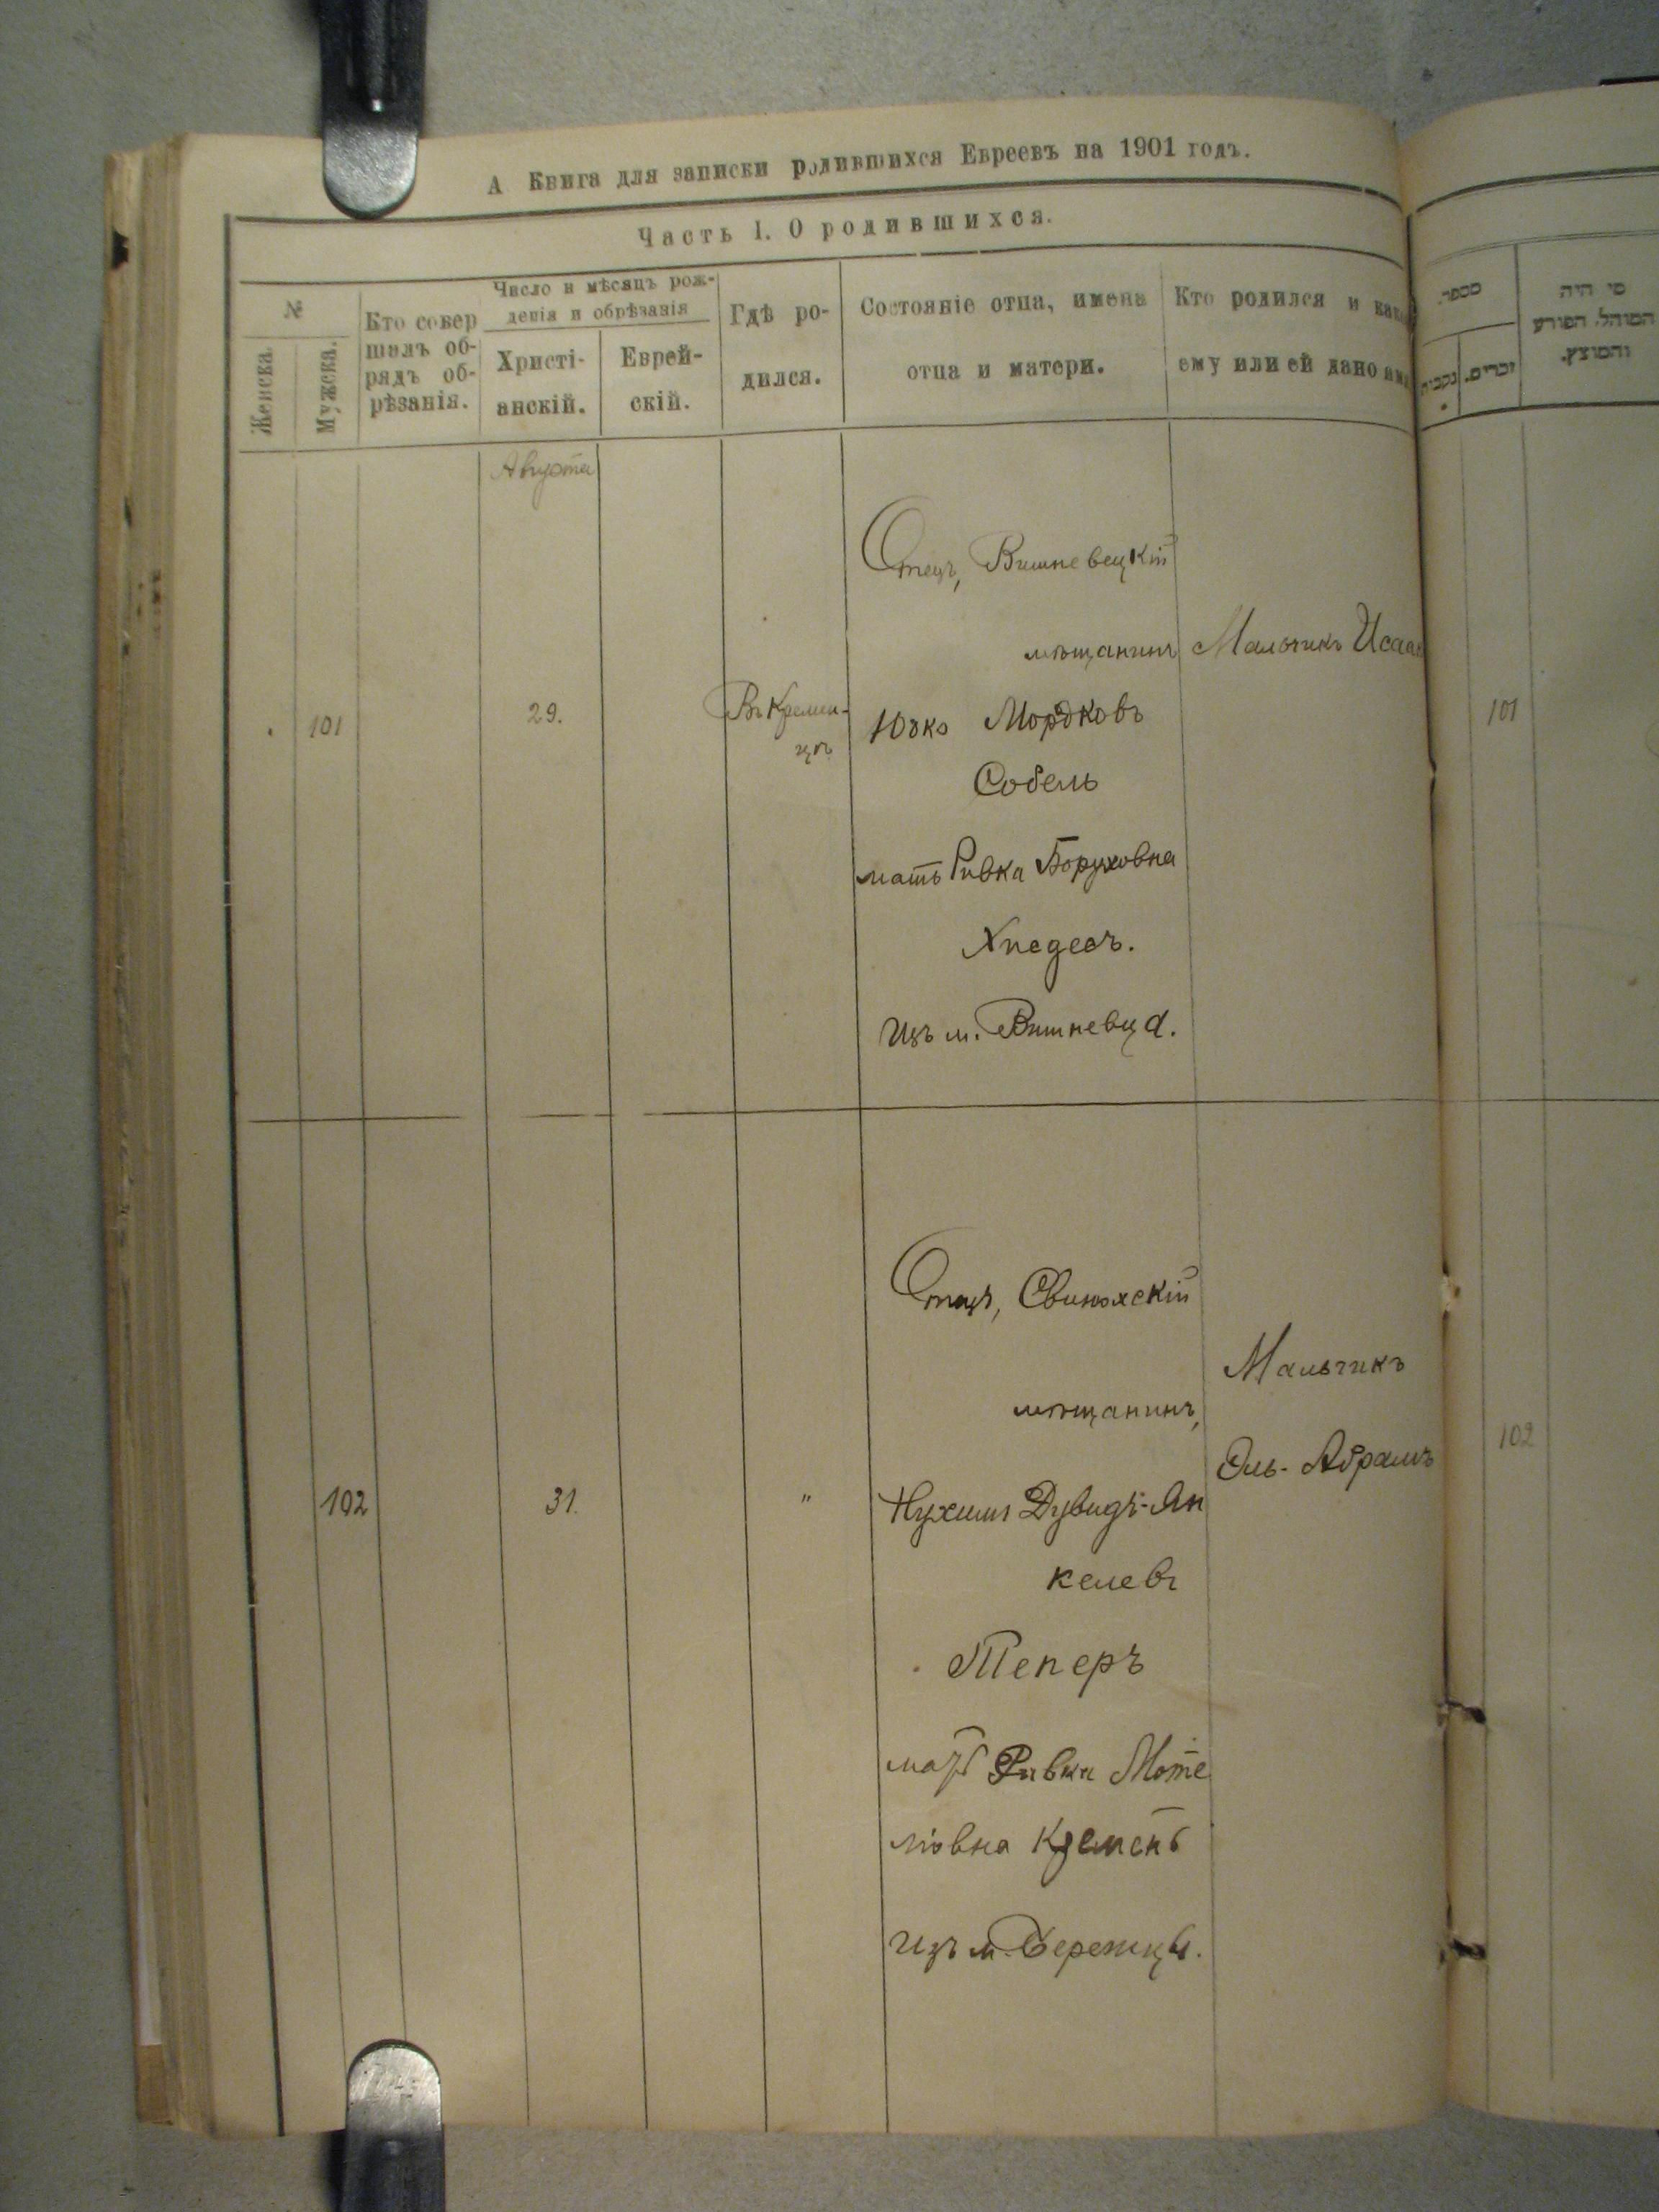 А Книга для записки родившихся Евреевъ на 1901 годъ.
Часть 1. О родившихся.
№
Женска
Мужска.
Кто совер
шалъ об-
рядъ об-
рѣзанія.
Число и мѣсяцъ рож-
денія и обрѣзанія
Христі-
анскій.
Еврей-
скій.
Гдѣ ро-
дился.
Состояніе отца, имена
отца и матери.
Кто родился и как
ему или ей дано имя
מספר.
נקבות
זכרים.
מי היה
המוהל הפורע
והמוצץ.
Августа
101
29.
Въ Кремен-
цѣ
Отецъ, Вишневецкій
мѣщанинъ
Юзко Мордковъ
Собель
мать Ривка Боруховна
из м. Вишневца.
Мальчикъ Исаак
101
102
31.
"
Отецъ, Свинюхскій
мѣщанинъ,
Нухимъ Дувидъ-Ян
келевъ
Теперъ
мать Ривка Моте
лiовна Кремень
изъ м. Бережцы.
Мальчикъ
Эль-Абрамъ
102